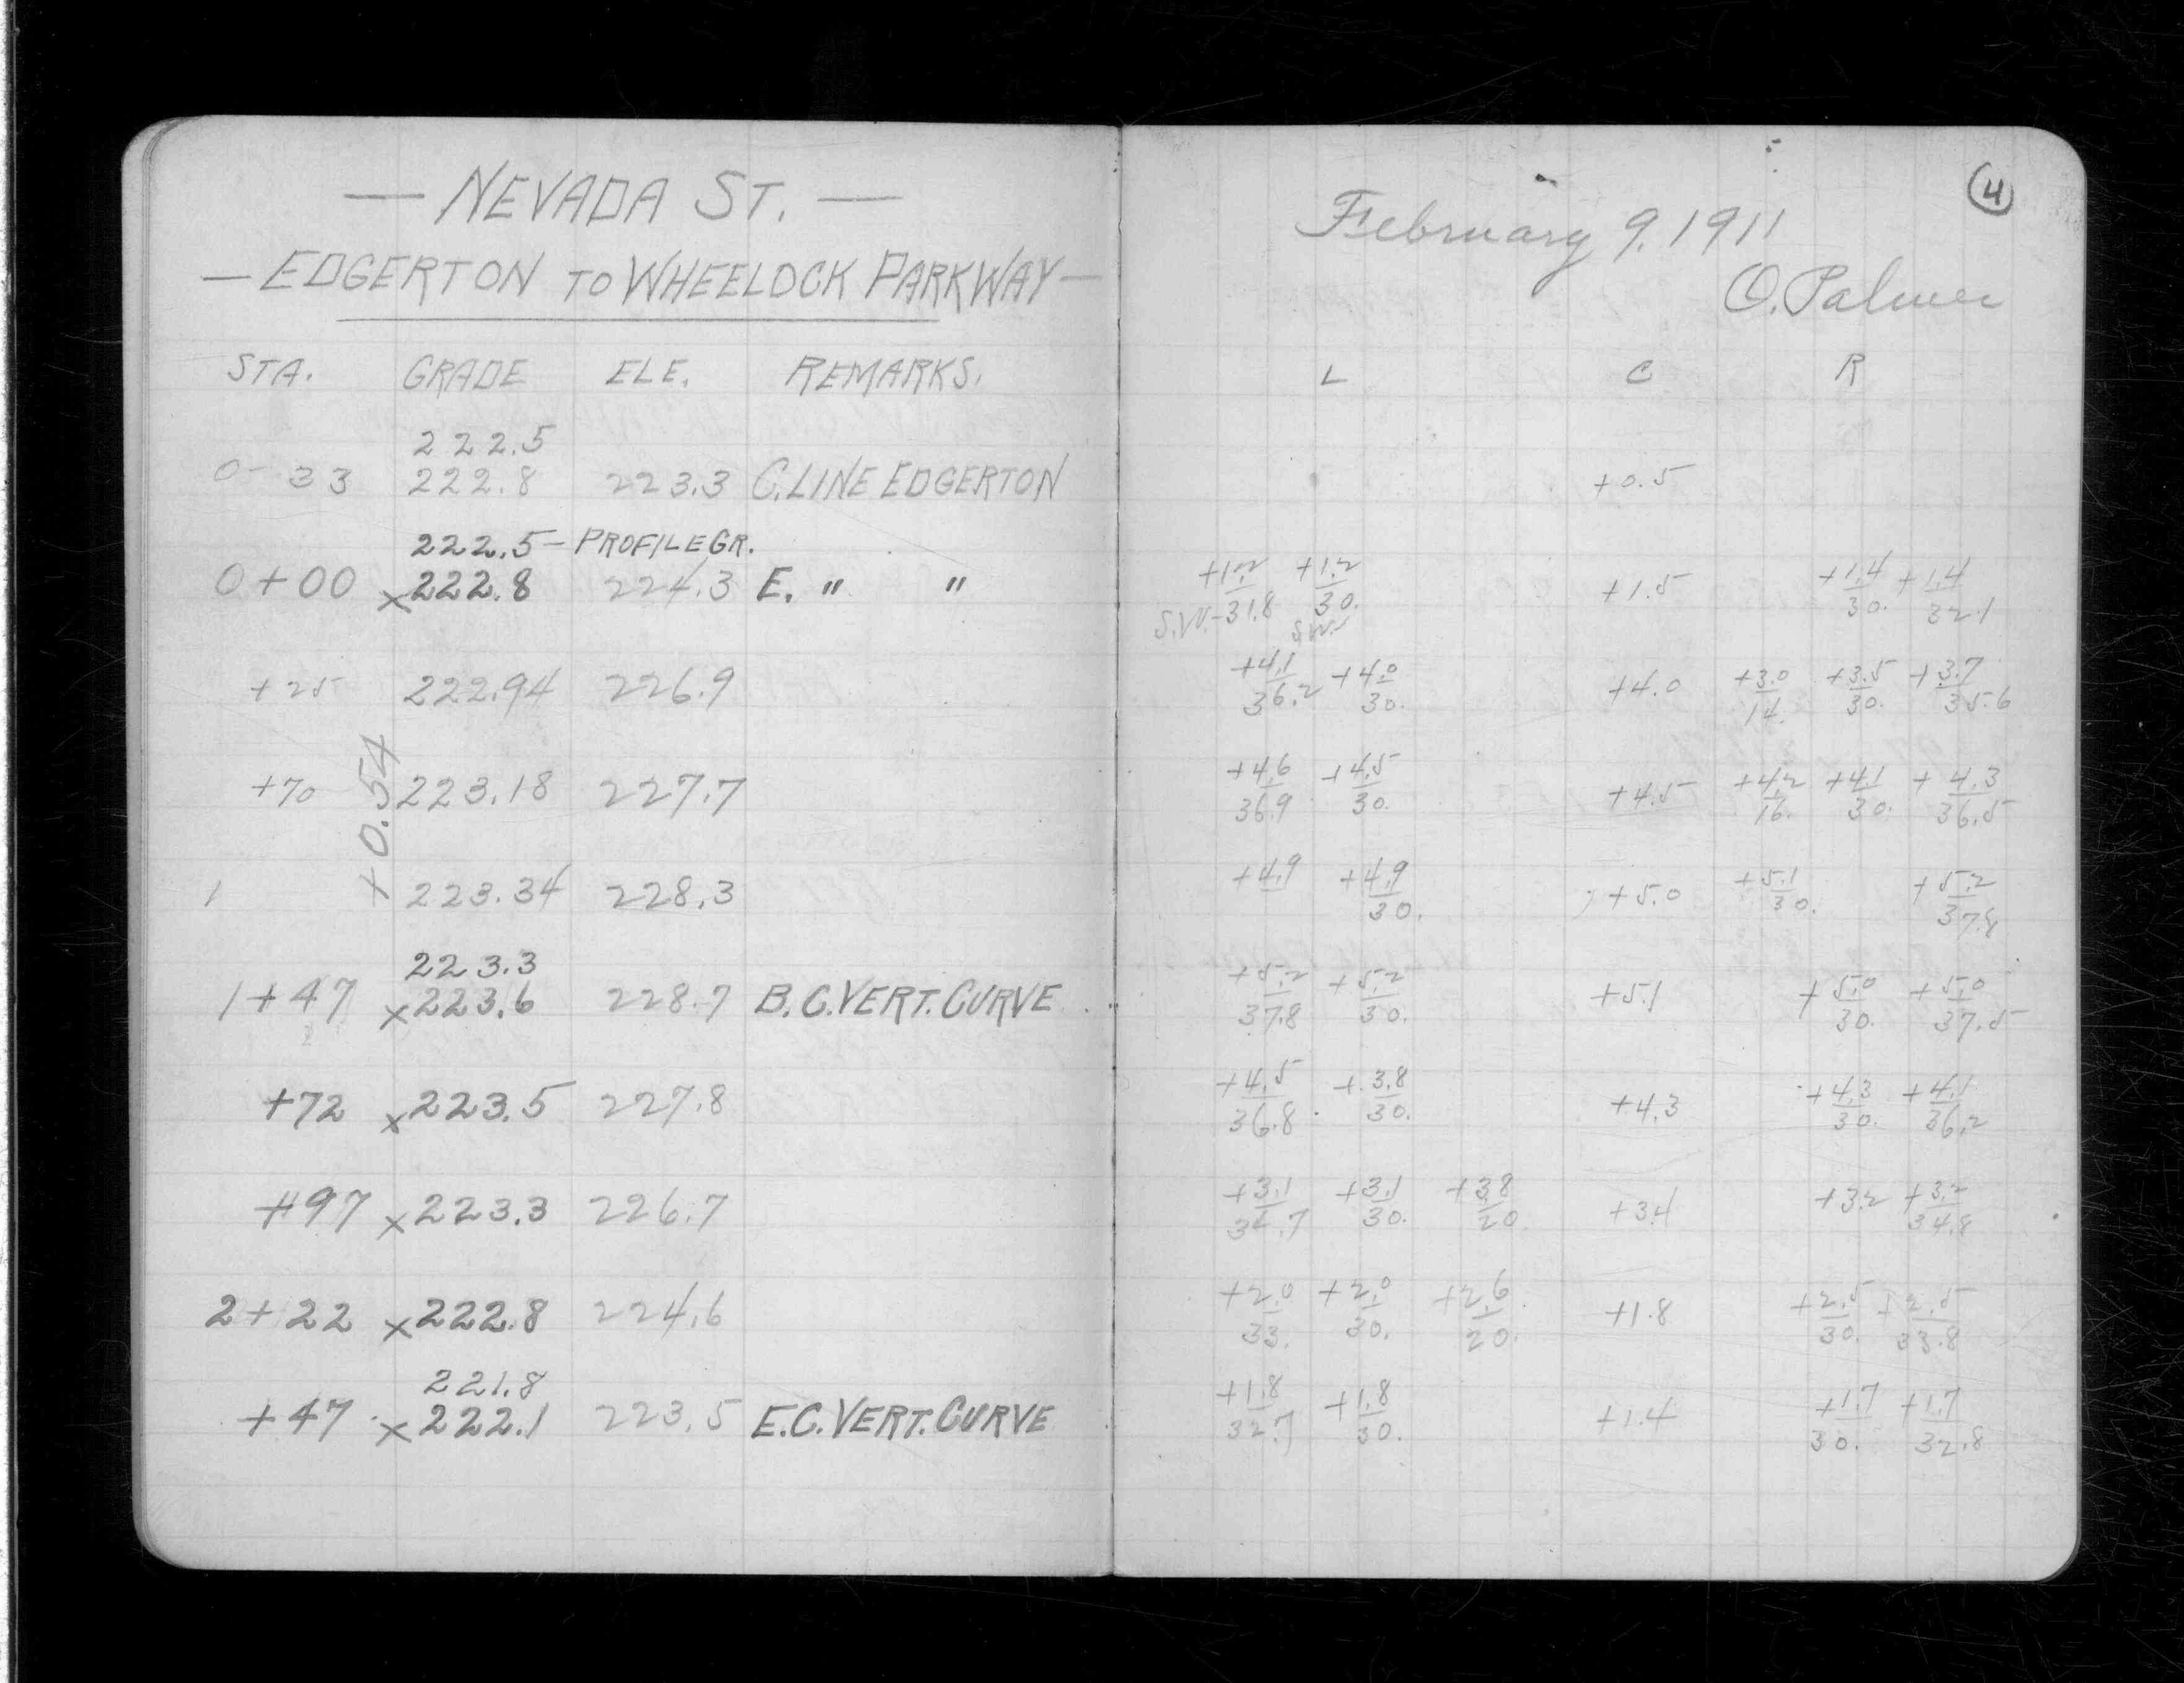 — NEVADA ST. —
— EDGERTON TO WHEELOCK PARKWAY —
STA. GRADE ELE. REMARKS.
222.5
0- 33 222.8 223.3 C. LINE EDGERTON
222.5 - PROFILE GR.
0+00 x222.8 224.3 E. " "
+25 222.94 226.9
+0.54
+70 223.18 227.7
1 223.34 228.3
223.3
1+47 x223.6 228.7 B.C. VERT. CURVE
+72 x223.5 227.8
+97 x223.3 226.7
2+22 x222.8 224.6
221.8
+47 x222.1 223.5 E.C. VERT. CURVE
4
February 9, 1911
O. Palmer
L C R
+0.5
+1.2 +1.2 +1.5 +1.4 +1.4
S.W.-31.8 30. 30. 32.1
S.W.
+4.1 +4.0 +4.0 +3.0 +3.5 +3.7
36.2 30. 14. 30. 35.6
+4.6 +4.5 +4.5 +4.2 +4.1 +4.3
36.9 30. 16. 30. 36.5
+4.9 +4.9 +5.0 +5.1 +5.2
30. 30. 37.8
+5.2 +5.2 +5.1 +5.0 +5.0
37.8 30. 30. 37.5
+4.5 +3.8 +4.3 +4.3 +4.1
36.8 30. 30. 36.2
+3.1 +3.1 +3.8 +3.4 +3.2 +3.2
34.7 30. 20 34.8
+2.0 +2.0 +2.6 +1.8 +2.5 +2.5
33. 30. 20. 30. 33.8
+1.8 +1.8 +1.4 +1.7 +1.7
32.7 30. 30. 32.8